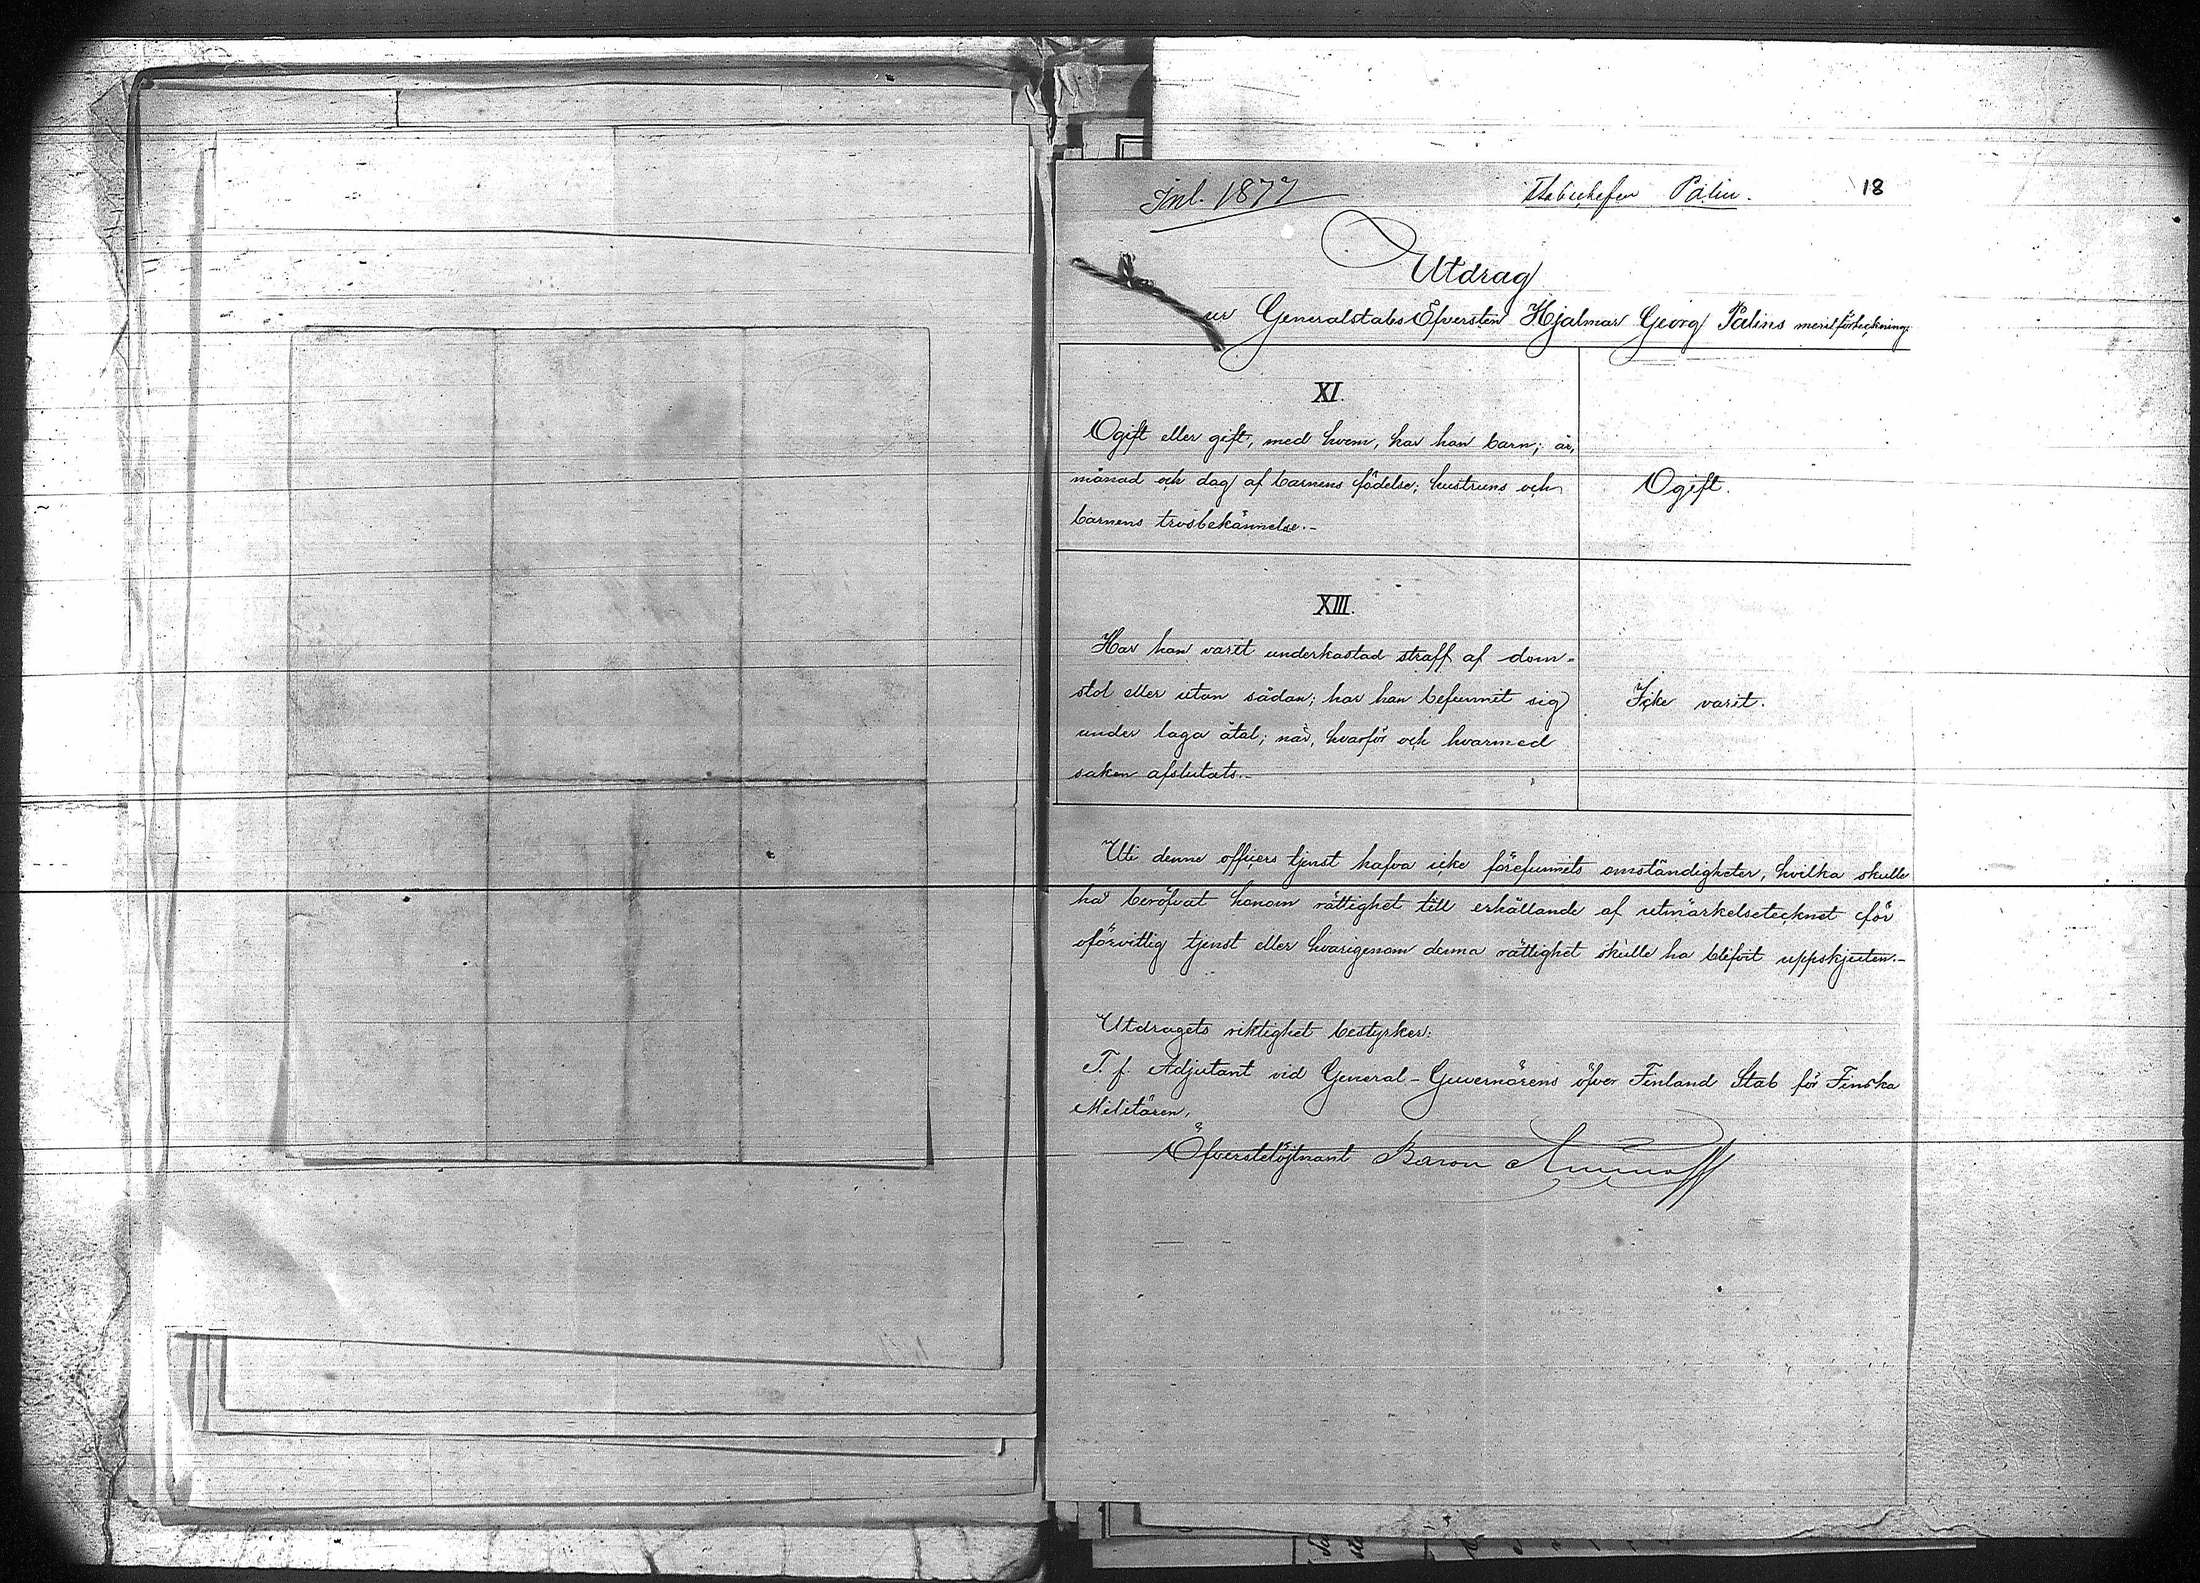 Inl. 1877
Stabschefen Palin.
18
Utdrag
ur GeneralstabsÖfversten Hjalmar Georg Palins meritförteckning:
XI.
Ogift eller gift, med hvem, har han barn; år,
månad och dag af barnens födelse; hustruns och
barnens trosbekännelse.-
Ogift.
XIII.
Har han varit underkastad straff af dom-
stol eller utan sådan; har han befunnit sig
under laga åtal; när, hvarför och hvarmed
saken afslutats.-
Icke varit.
Uti denne officers tjenst hafva icke förefunnits omständigheter, hvilka skulle
ha beröfvat honom rättighet till erhållande af utmärkelsetecknet för
oförvitlig tjenst eller hvarigenom denna rättighet skulle ha blifvit uppskjuten.-
Utdragets riktighet bestyrker:
T. f. Adjutant vid General-Guvernörens öfver Finland Stab för Finska
Militären,
Öfverstelöjtnant Baron Aminoff